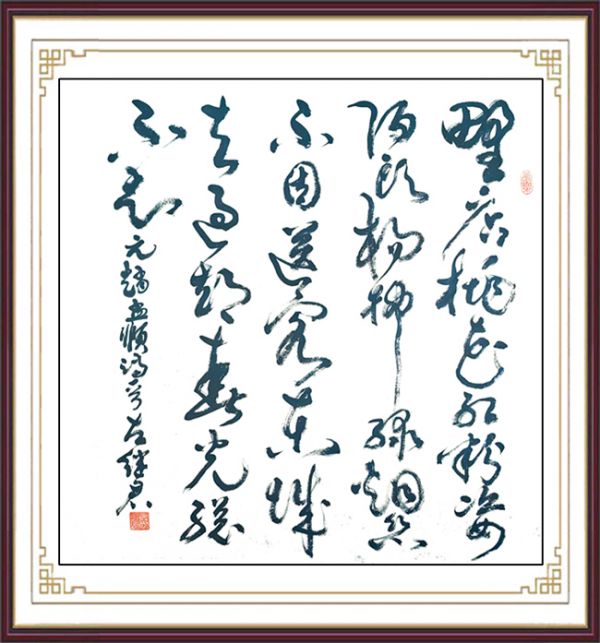 野店桃花红粉姿
陌头杨柳绿烟丝
不因送客东城
去过却春光总
不知 元趙孟頫诗 左继君